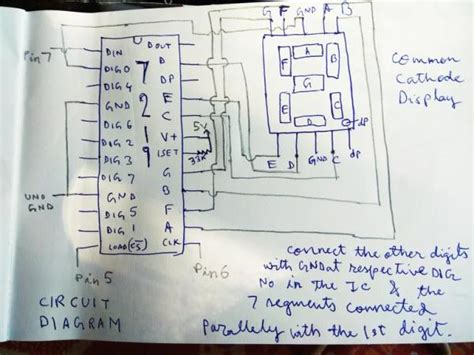 G F GND A B
Pin 7
DIN
DIG 0
DIG 4
GND
DIG 6
DIG 2
DIG 3
DIG 7
GND
DIG 5
DIG 1
LOAD (CS)
7
2
1
9
DOUT
D
DP
E
C
V+
ISET
G
B
F
A
CLK
5V
33K
UNO
GND
Pin 5
Pin 6
A
F
B
G
E
C
D
dp
E D GND C dp
Common
Cathode
Display
CIRCUIT
DIAGRAM
Connect the other digits
with GND at respective DIG
No in the IC & the
7 segments connected
Parallely with the 1st digit.